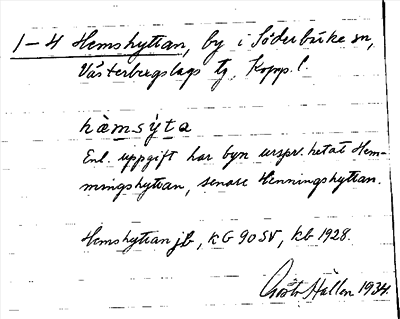 1-4 Hemshyttan, by i Söderbärke sn,
Västerbergslags tg, Kopp. l.
hæmsýta
Enl. uppgift har byn urspr. hetat Hem-
mingshyttan, senare Henningshyttan.
Hemshyttan jb, kG 90 SV, kb 1928.
Gösta Hallen 1934.